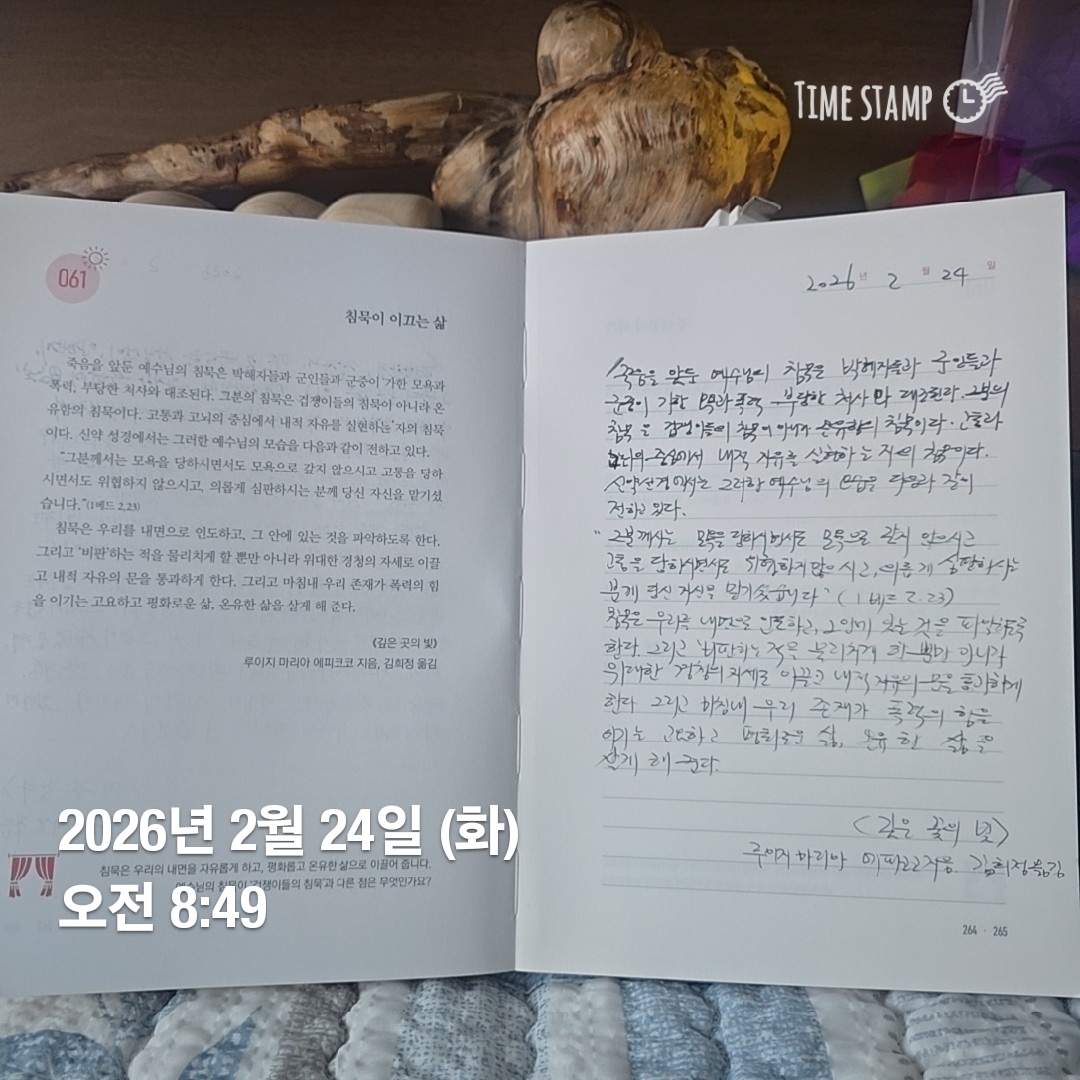 TIME STAMP
061
침묵이 이끄는 삶
죽음을 앞둔 예수님의 침묵은 박해자들과 군인들과 군중이 가한 모욕과
폭력, 부당한 처사와 대조된다. 그분의 침묵은 겁쟁이들의 침묵이 아니라 온
유함의 침묵이다. 고통과 고뇌의 중심에서 내적 자유를 실현하는 자의 침묵
이다. 신약 성경에서는 그러한 예수님의 모습을 다음과 같이 전하고 있다.
"그분께서는 모욕을 당하시면서도 모욕으로 갚지 않으시고 고통을 당하
시면서도 위협하지 않으시고, 의롭게 심판하시는 분께 당신 자신을 맡기셨
습니다."(1베드 2,23)
침묵은 우리를 내면으로 인도하고, 그 안에 있는 것을 파악하도록 한다.
그리고 '비판'하는 적을 물리치게 할 뿐만 아니라 위대한 경청의 자세로 이끌
고 내적 자유의 문을 통과하게 한다. 그리고 마침내 우리 존재가 폭력의 힘
을 이기는 고요하고 평화로운 삶, 온유한 삶을 살게 해 준다.
《깊은 곳의 빛》
루이지 마리아 에피코코 지음, 김희정 옮김
침묵은 우리의 내면을 자유롭게 하고, 평화롭고 온유한 삶으로 이끌어 줍니다.
예수님의 침묵이 '겁쟁이들의 침묵'과 다른 점은 무엇인가요?
2026년 2월 24일 (화)
오전 8:49
2026년 2월 24일
죽음을 앞둔 예수님의 침묵은 박해자들과 군인들과
군중이 가한 모욕과 폭력 부당한 처사와 대조된다. 그분의
침묵은 겁쟁이들의 침묵이 아니라 온유함의 침묵이다. 고통과
고뇌의 중심에서 내적 자유를 실현하는 자의 침묵이다.
신약성경에서는 그러한 예수님의 모습을 다음과 같이
전하고 있다.
"그분께서는 모욕을 당하시면서도 모욕으로 갚지 않으시고
고통을 당하시면서도 위협하지 않으시고, 의롭게 심판하시는
분께 당신 자신을 맡기셨습니다" (1베드 2.23)
침묵은 우리를 내면으로 인도하고, 그 안에 있는 것을 파악하도록
한다. 그리고 '비판하는 적을 물리치게 할 뿐만 아니라
위대한 경청의 자세로 이끌고 내적 자유의 문을 통과하게
한다 그리고 마침내 우리 존재가 폭력의 힘을
이기는 고요하고 평화로운 삶, 온유한 삶을
살게 해 준다.
<깊은 곳의 빛>
루이지 마리아 에피코코지음. 김희정 옮김
264 · 265